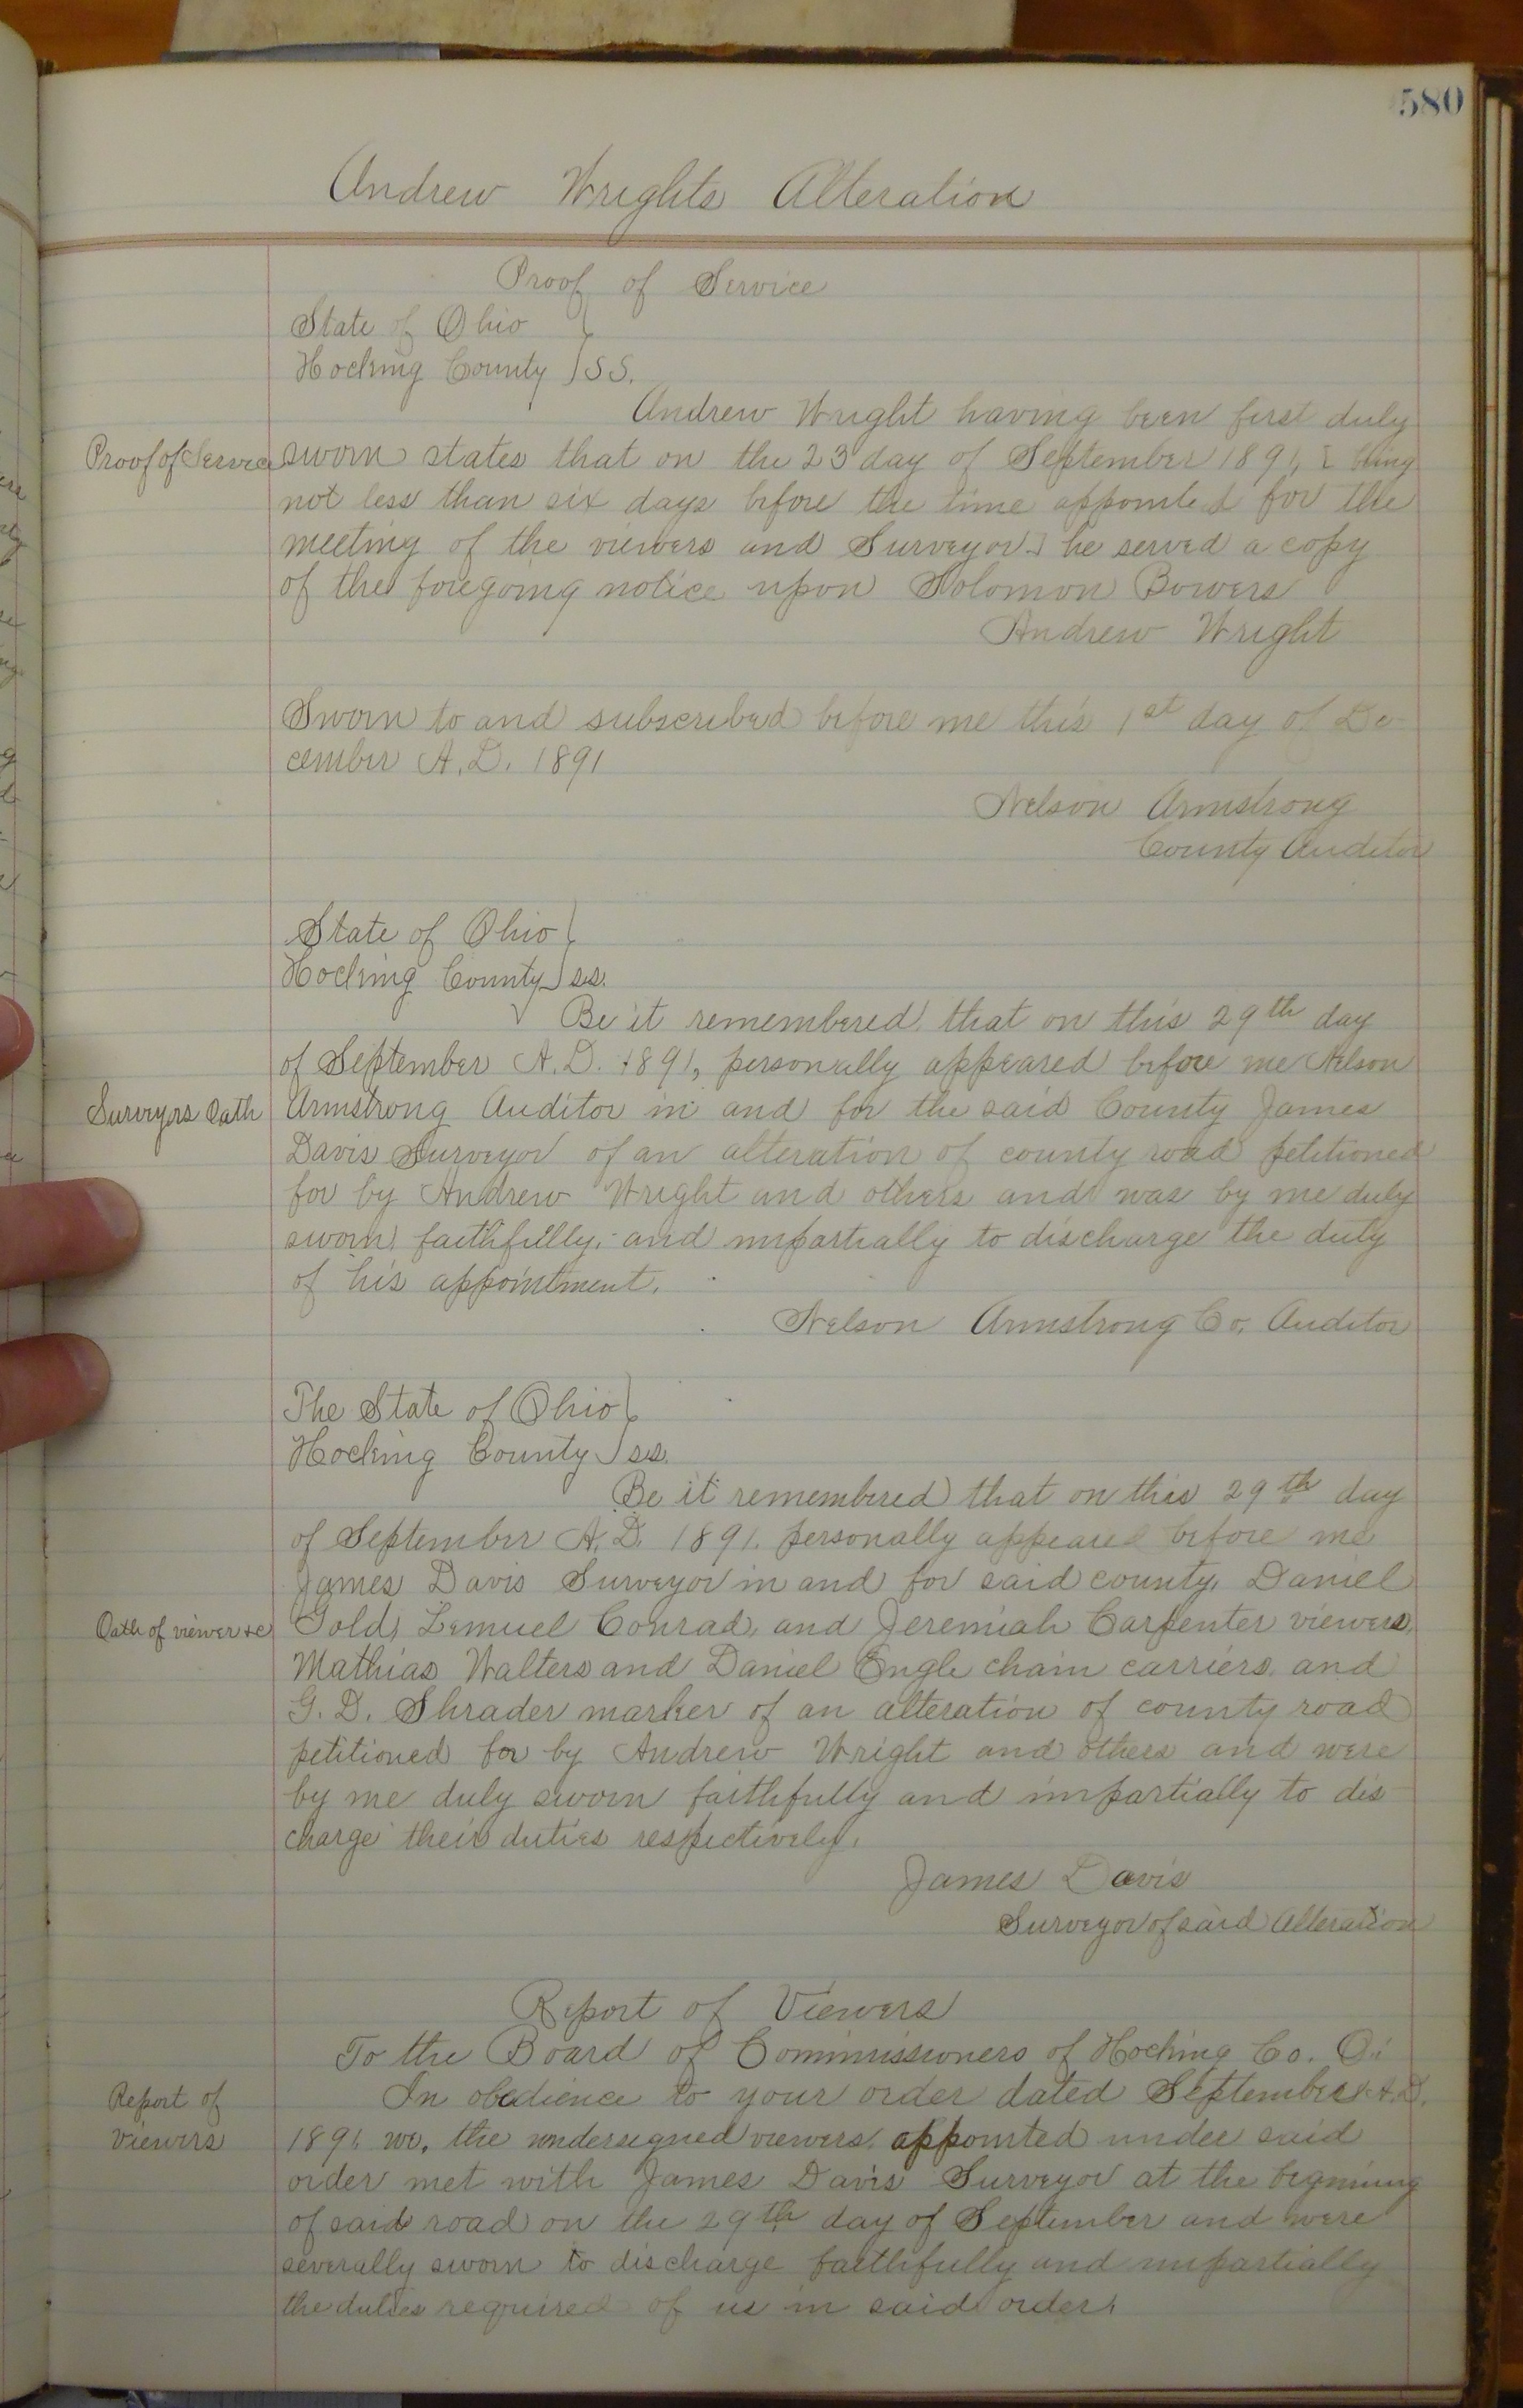 580
Andrew Wrights Alteration
Proof of Service
State of Ohio }
Hocking County } SS.
Andrew Wright having been first duly
Proof of Service
sworn states that on the 23 day of September 1891, [being
not less than six days before the time appointed for the
meeting of the viewers and Surveyor] he served a copy
of the foregoing notice upon Solomon Bowers
Andrew Wright
Sworn to and subscribed before me this 1st day of De
cember A.D. 1891
Nelson Armstrong
County Auditor
State of Ohio }
Hocking County } ss.
Be it remembered that on this 29th day
of September A.D. 1891, personally appeared before me Nelson
Surveyors Oath
Armstrong Auditor in and for the said County James
Davis Surveyor of an alteration of county road petitioned
for by Andrew Wright and others and was by me duly
sworn, faithfully, and impartially to discharge the duty
of his appointment.
Nelson Armstrong Co. Auditor
The State of Ohio }
Hocking County } ss.
Be it remembered that on this 29th day
of September A.D. 1891. personally appeared before me
James Davis Surveyor in and for said county, Daniel
Oath of viewer &c
Gold, Lemuel Conrad, and Jeremiah Carpenter viewers,
Mathias Walters and Daniel Engle chain carriers and
G. D. Shrader marker of an alteration of county road
petitioned for by Andrew Wright and others and were
by me duly sworn faithfully and impartially to dis
charge their duties respectively.
James Davis
Surveyor of said Alteration
Report of Viewers
To the Board of Commissioners of Hocking Co. O.
In obedience to your order dated September A.D.
Report of
Viewers
1891 we, the undersigned viewers, appointed under said
order met with James Davis Surveyor at the begining
of said road on the 29th day of September and were
severally sworn to discharge faithfully and impartially
the duties required of us in said order.